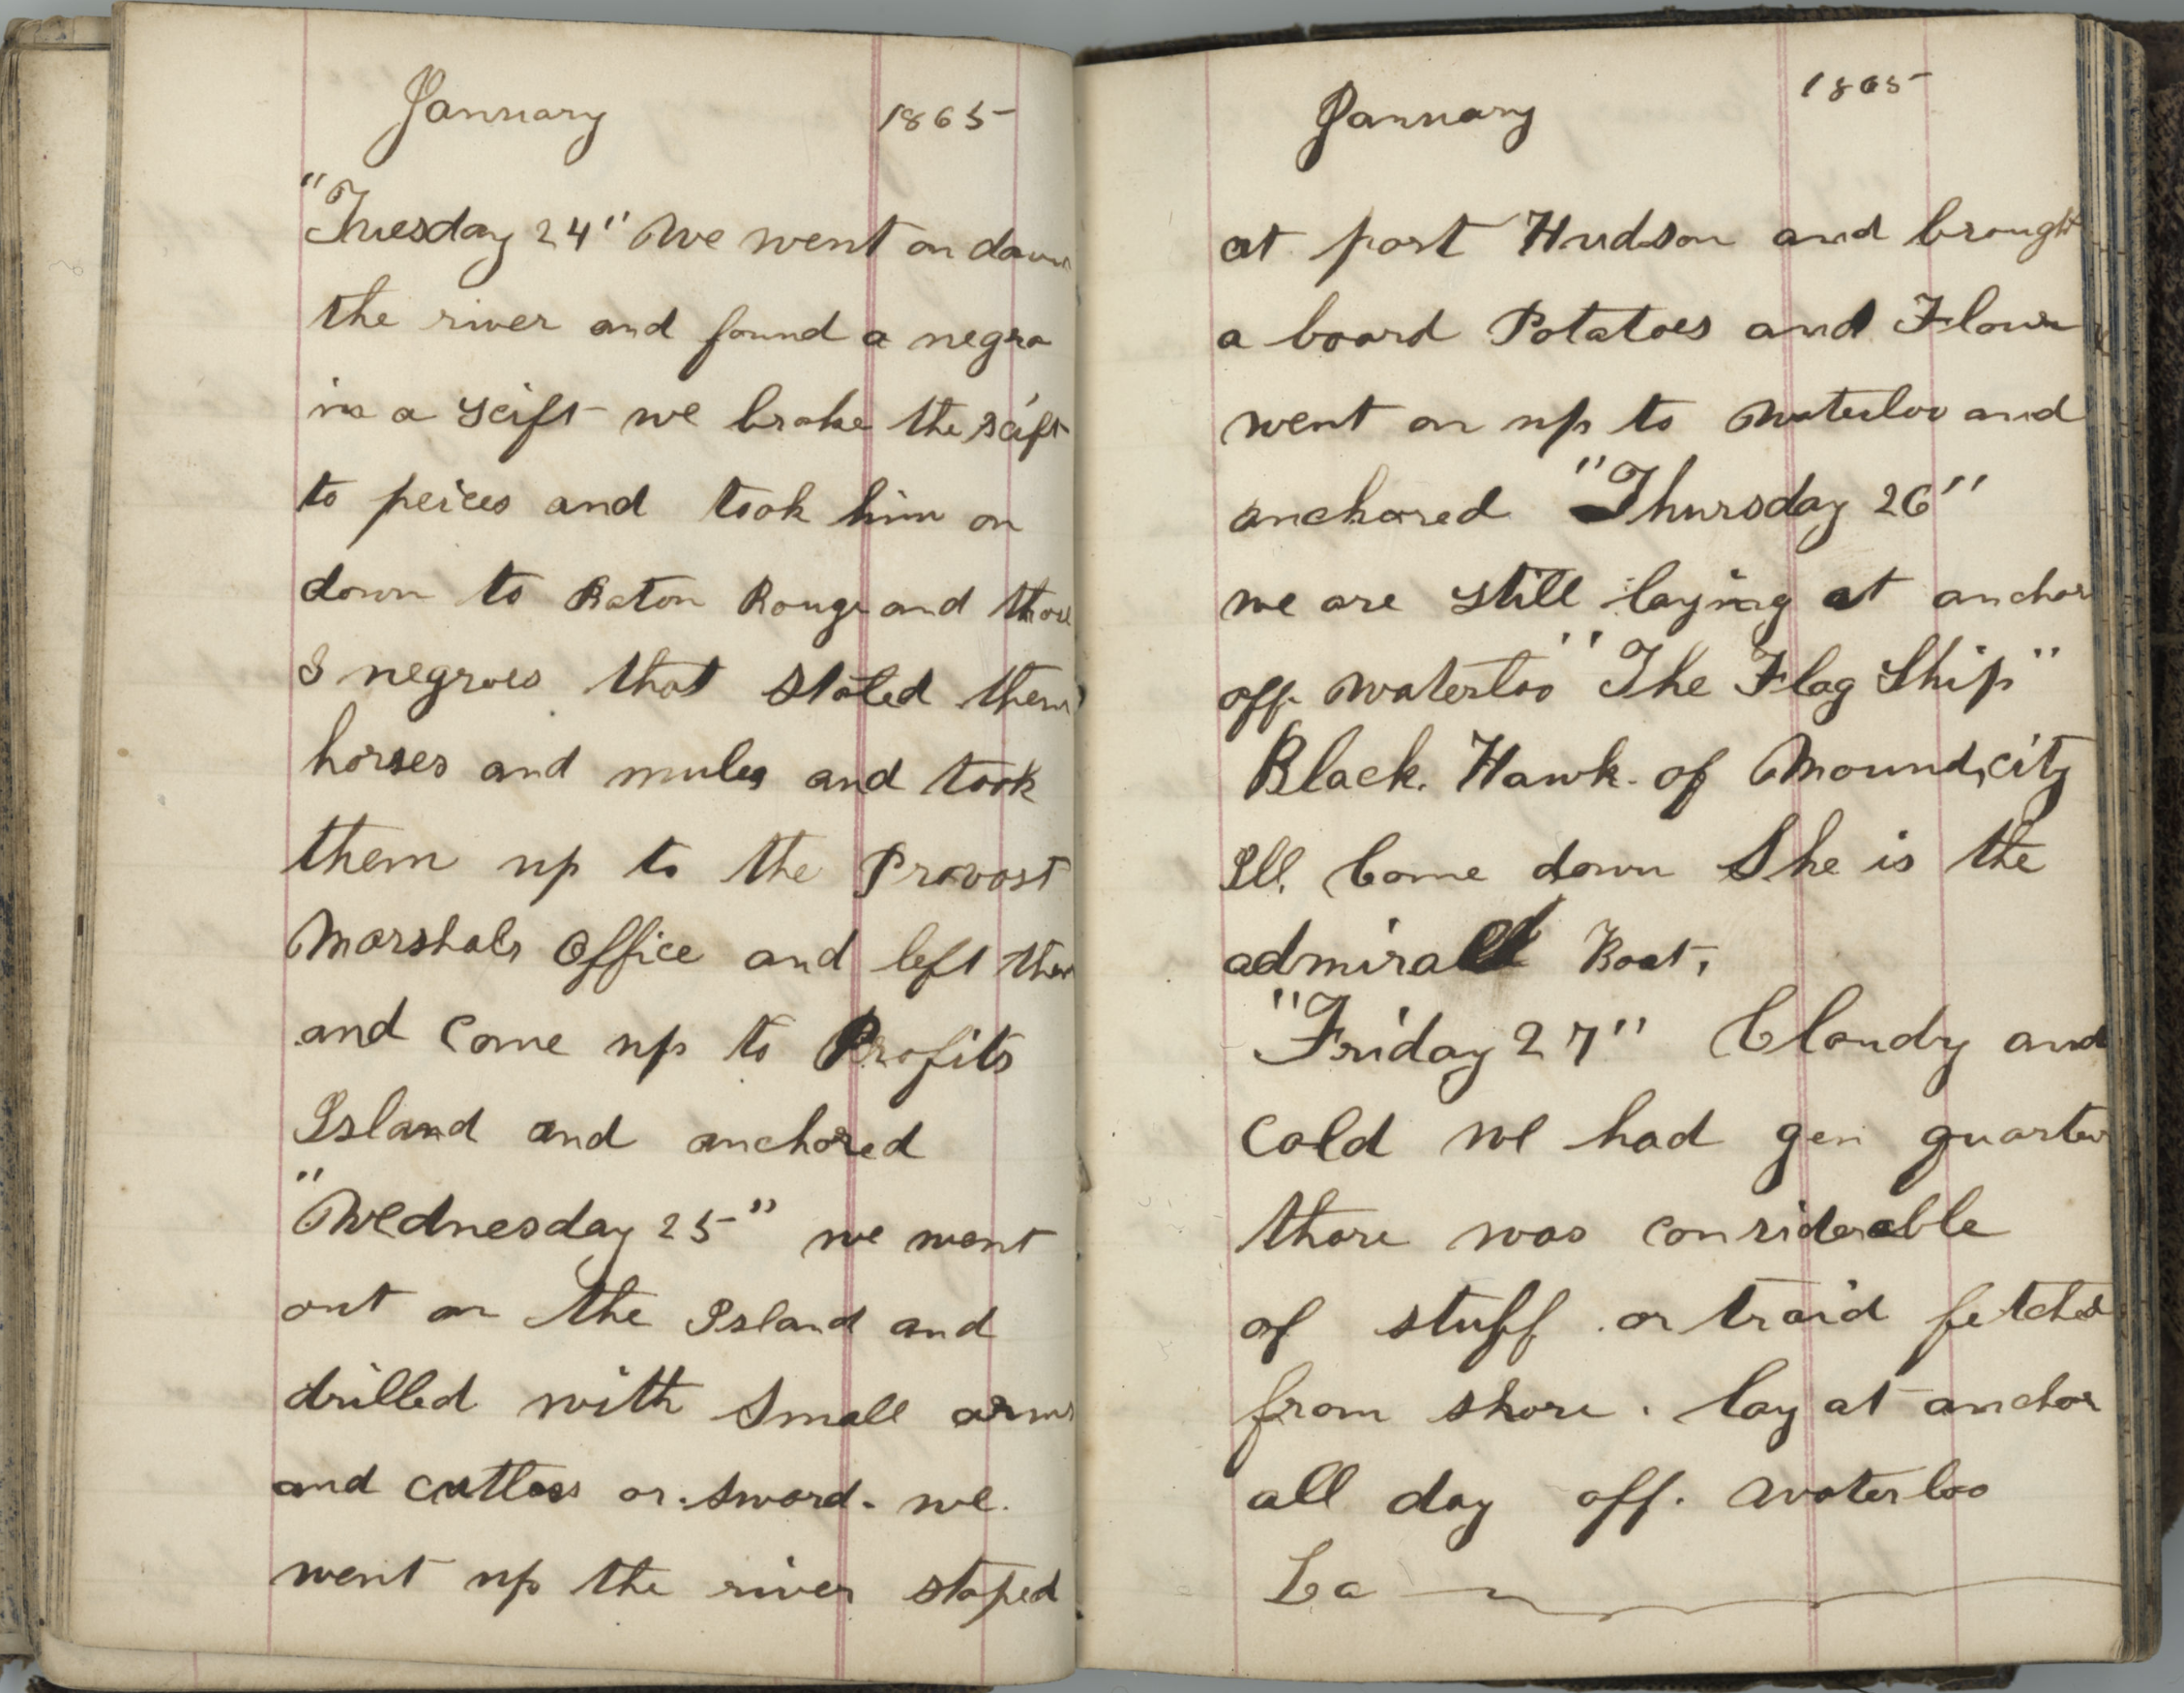 January 1865
"Tuesday 24" We went on down
the river and found a negro
in a scift we broke the scift
to peices and took him on
down to Baton Rouge and those
negroes that staled them
horses and mules and took
them up to the Provost
Marshals Office and left them
and Come up to Profits
Island and anchored
"Wednesday 25" we went
out on the Island and
drilled with Small arms
and cutlass or. sword. we.
went up the river stoped
January 1865
at port Hudson and brought
a board Potatoes and Flour
went on up to Waterloo and
anchored "Thursday 26"
we are still laying at anchor
off. Waterloo "The Flag Ship"
Black. Hawk. of Mound, city
Ill. Come down She is the
admirall Boat,
"Friday 27" Cloudy and
Cold we had gen quarters
thare was considerable
of stuff or traid fetched
from shore. lay at anchor
all day off. Waterloo
La